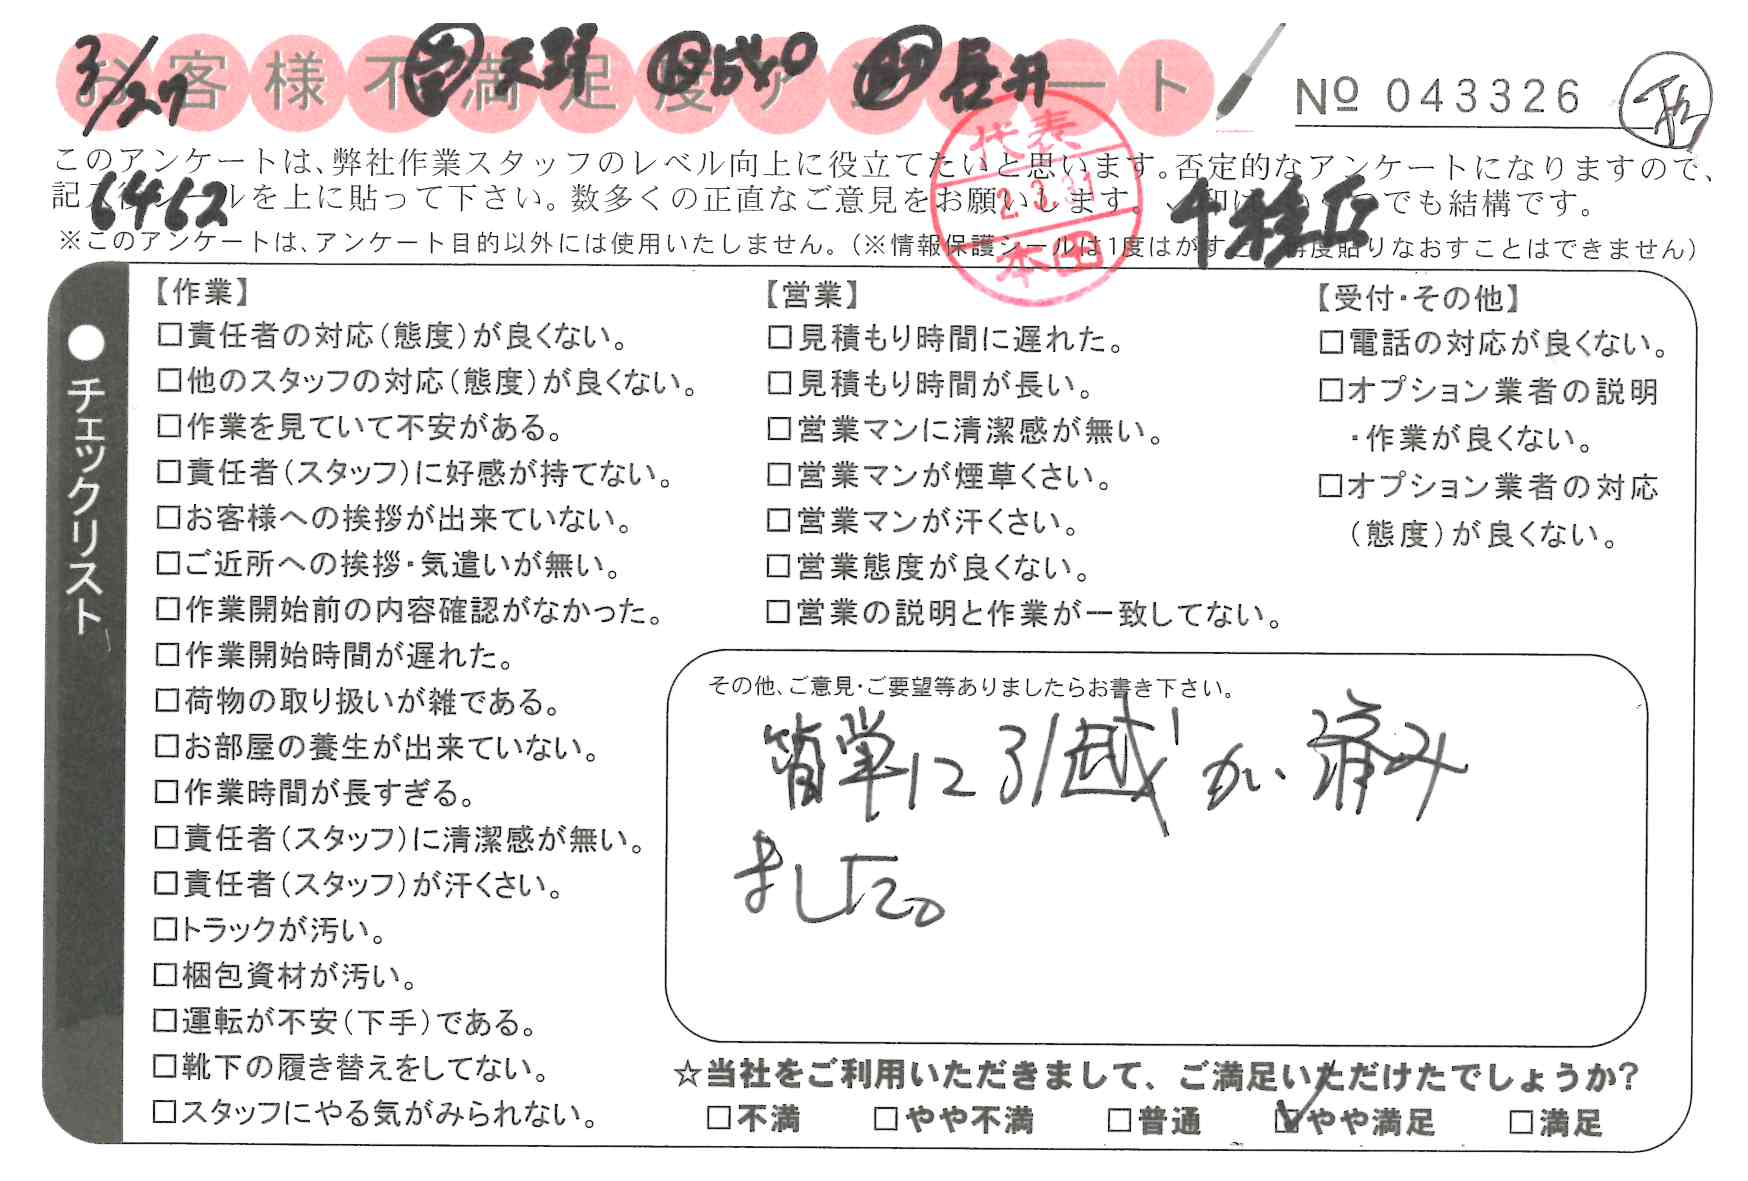 3/27 営 天野 受 540 助 長井
お客様不満足度アンケート
No 043326
このアンケートは、弊社作業スタッフのレベル向上に役立てたいと思います。否定的なアンケートになりますので、
シールを上に貼って下さい。数多くの正直なご意見をお願いします。でも結構です。
6462
※このアンケートは、アンケート目的以外には使用いたしません。(※情報保護シールは1度はがすと、再度貼りなおすことはできません)
代表
2.3.31
本田
●チェックリスト
【作業】
□責任者の対応(態度)が良くない。
□他のスタッフの対応(態度)が良くない。
□作業を見ていて不安がある。
□責任者(スタッフ)に好感が持てない。
□お客様への挨拶が出来ていない。
□ご近所への挨拶・気遣いが無い。
□作業開始前の内容確認がなかった。
□作業開始時間が遅れた。
□荷物の取り扱いが雑である。
□お部屋の養生が出来ていない。
□作業時間が長すぎる。
□責任者(スタッフ)に清潔感が無い。
□責任者(スタッフ)が汗くさい。
□トラックが汚い。
□梱包資材が汚い。
□運転が不安(下手)である。
□靴下の履き替えをしてない。
□スタッフにやる気がみられない。
【営業】
□見積もり時間に遅れた。
□見積もり時間が長い。
□営業マンに清潔感が無い。
□営業マンが煙草くさい。
□営業マンが汗くさい。
□営業態度が良くない。
□営業の説明と作業が一致してない。
【受付・その他】
□電話の対応が良くない。
□オプション業者の説明
・作業が良くない。
□オプション業者の対応
(態度)が良くない。
その他、ご意見・ご要望等ありましたらお書き下さい。
簡単に引越しが済み
ました。
☆当社をご利用いただきまして、ご満足いただけたでしょうか?
□不満 □やや不満 □普通 ☑やや満足 □満足